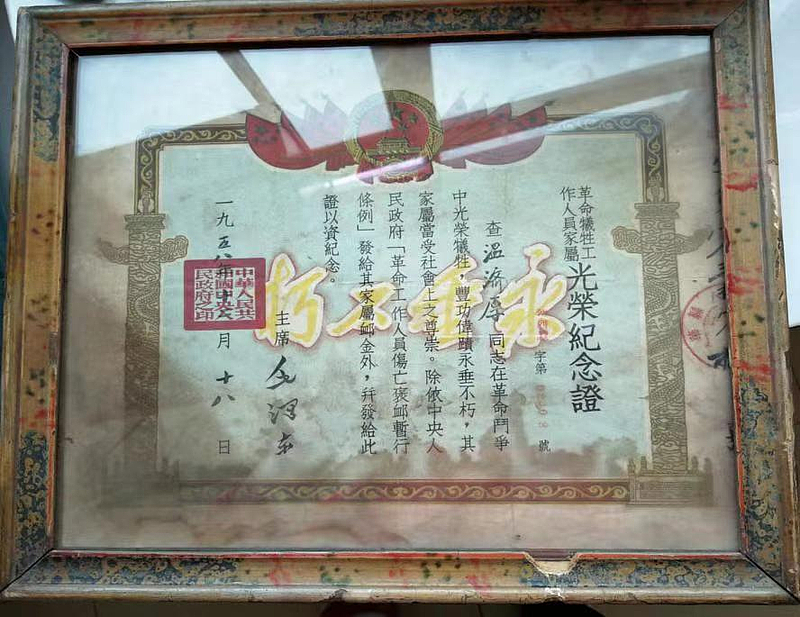 革命犧牲工
作人員家屬
光榮紀念證
字第 號
查溫濟厚同志在革命鬥爭
中光榮犧牲,豐功偉蹟永垂不朽,其
家屬當受社會上之尊崇。除依中央人
民政府「革命工作人員傷亡褒卹暫行
條例」發給其家屬卹金外,幷發給此
證以資紀念。
主席 毛澤東
一九五八年 月十八日
中華人民共
和國中央人
民政府之印
永垂不朽